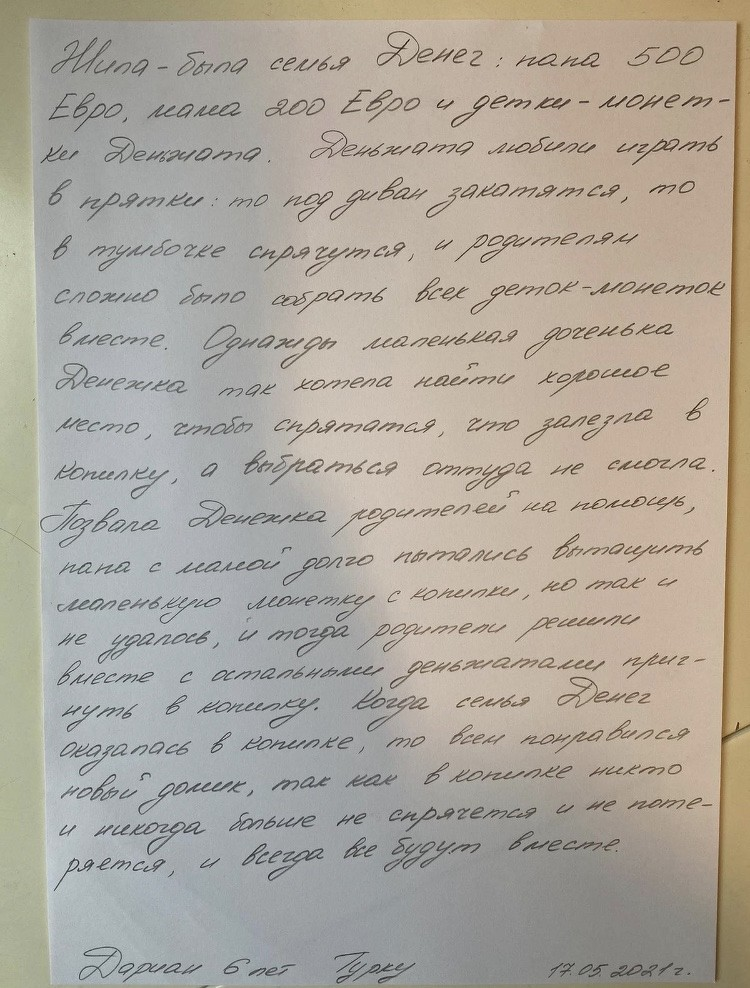 Жила-была семья Денег: папа 500
Евро, мама 200 Евро и детки-монет-
ки Деньжата. Деньжата любили играть
в прятки: то под диван закатятся, то
в тумбочке спрячутся, и родителям
сложно было собрать всех деток-монеток
вместе. Однажды маленькая доченька
Денежка так хотела найти хорошое
место, чтобы спрятатся, что залезла в
копилку, а выбраться оттуда не смогла.
Позвала Денежка родителей на помощь,
папа с мамой долго пытались вытащить
маленькую монетку с копилки, но так и
не удалось, и тогда родители решили
вместе с остальными деньжатами приг-
нуть в копилку. Когда семья Денег
оказалась в копилке, то всем понравился
новый домик, так как в копилке никто
и никогда больше не спрячется и не поте-
ряется, и всегда все будут вместе.
Дариан 6 лет Турку 17.05.2021 г.